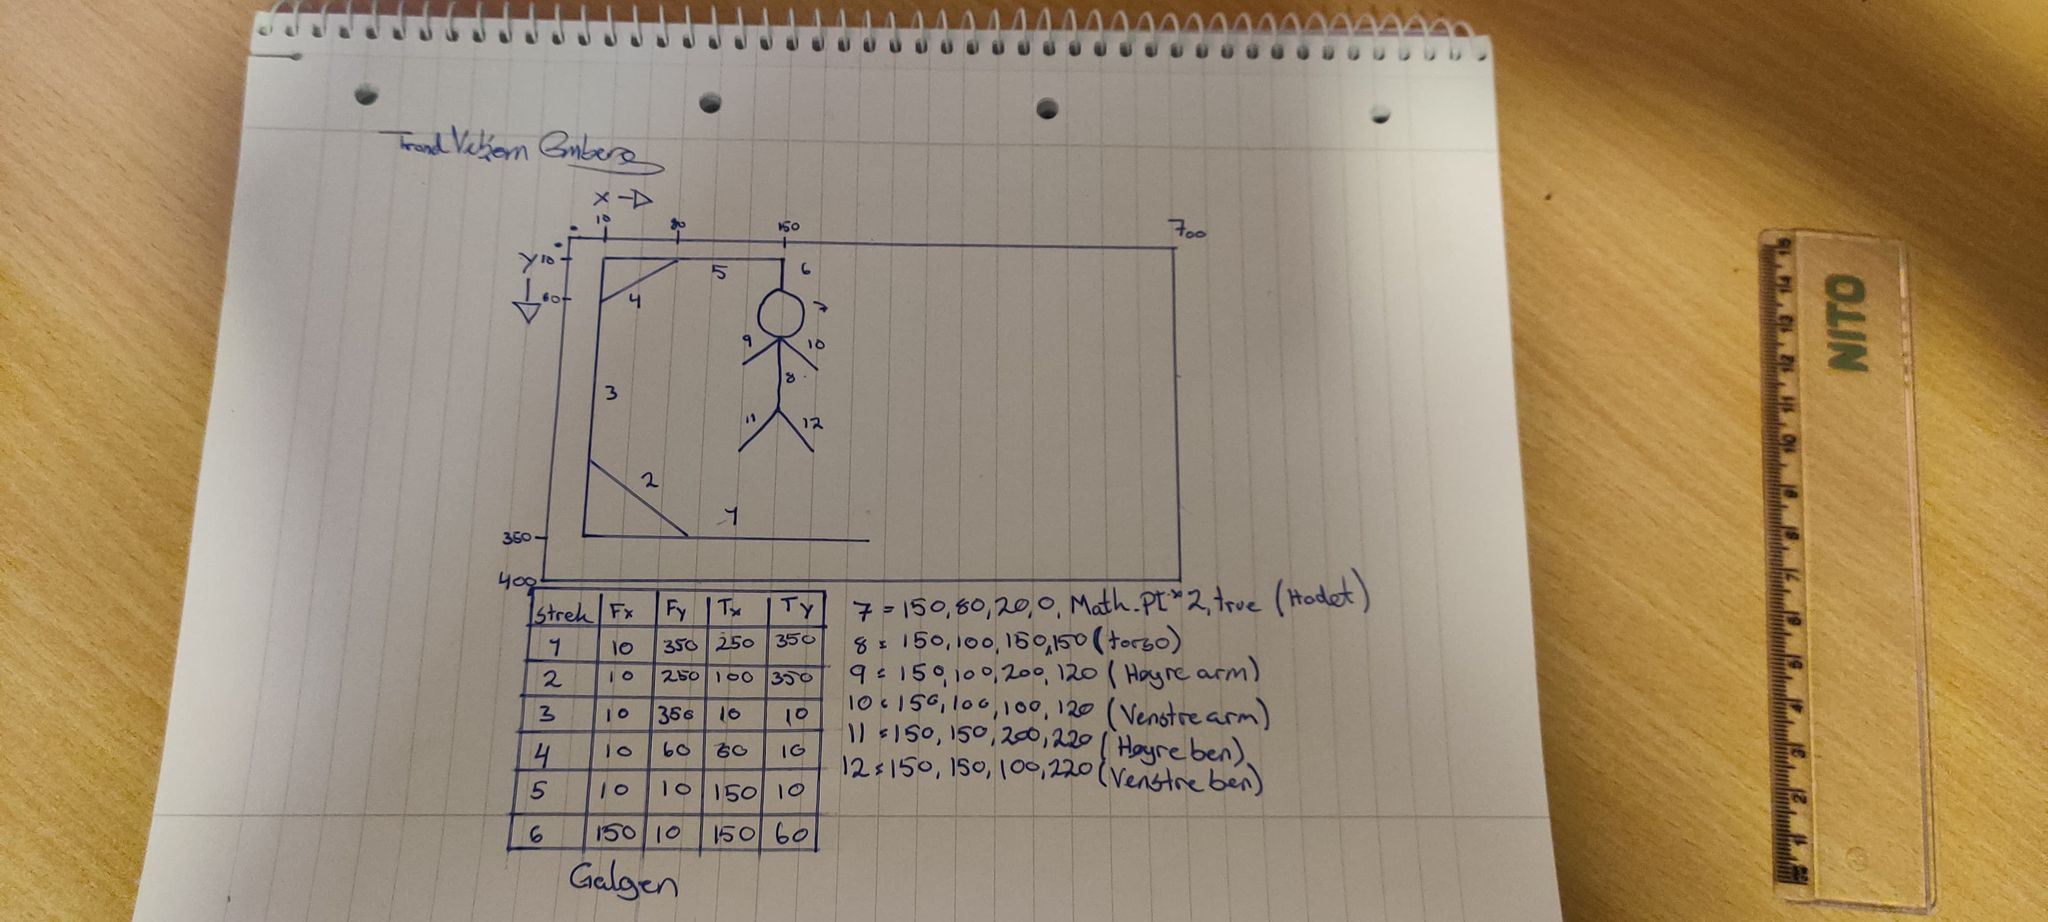 Trond
X →
10 80 150
700
Y 10
5 6
60
4
7
9 10
8
3
11 12
2
1
350
400
Strek Fx Fy Tx Ty
1 10 350 250 350
2 10 250 100 350
3 10 350 10 10
4 10 60 80 10
5 10 10 150 10
6 150 10 150 60
Galgen
7 = 150, 80, 20, 0, Math.PI * 2, true (Hodet)
8 = 150, 100, 150, 150 (torso)
9 = 150, 100, 200, 120 (Høyre arm)
10 = 150, 100, 100, 120 (Venstre arm)
11 = 150, 150, 200, 220 (Høyre ben)
12 = 150, 150, 100, 220 (Venstre ben)
NITO